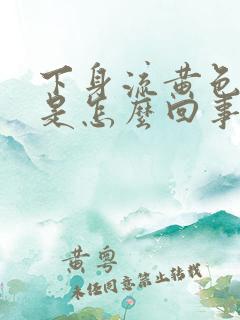 下身流黄色
是怎麼回事
黄粤
未经同意禁止转载